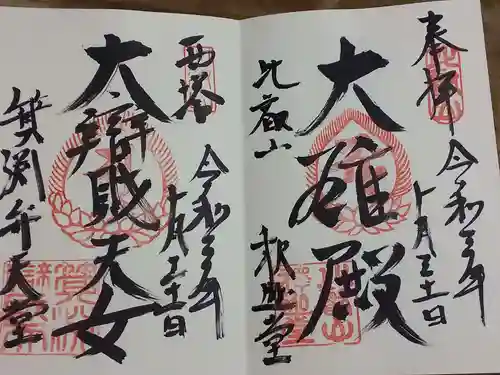 奉拝
令和三年
十月三十一日
大雄殿
比叡山
釈迦堂
西塔
令和三年
十月三十一日
大辯財天女
箕淵弁天堂